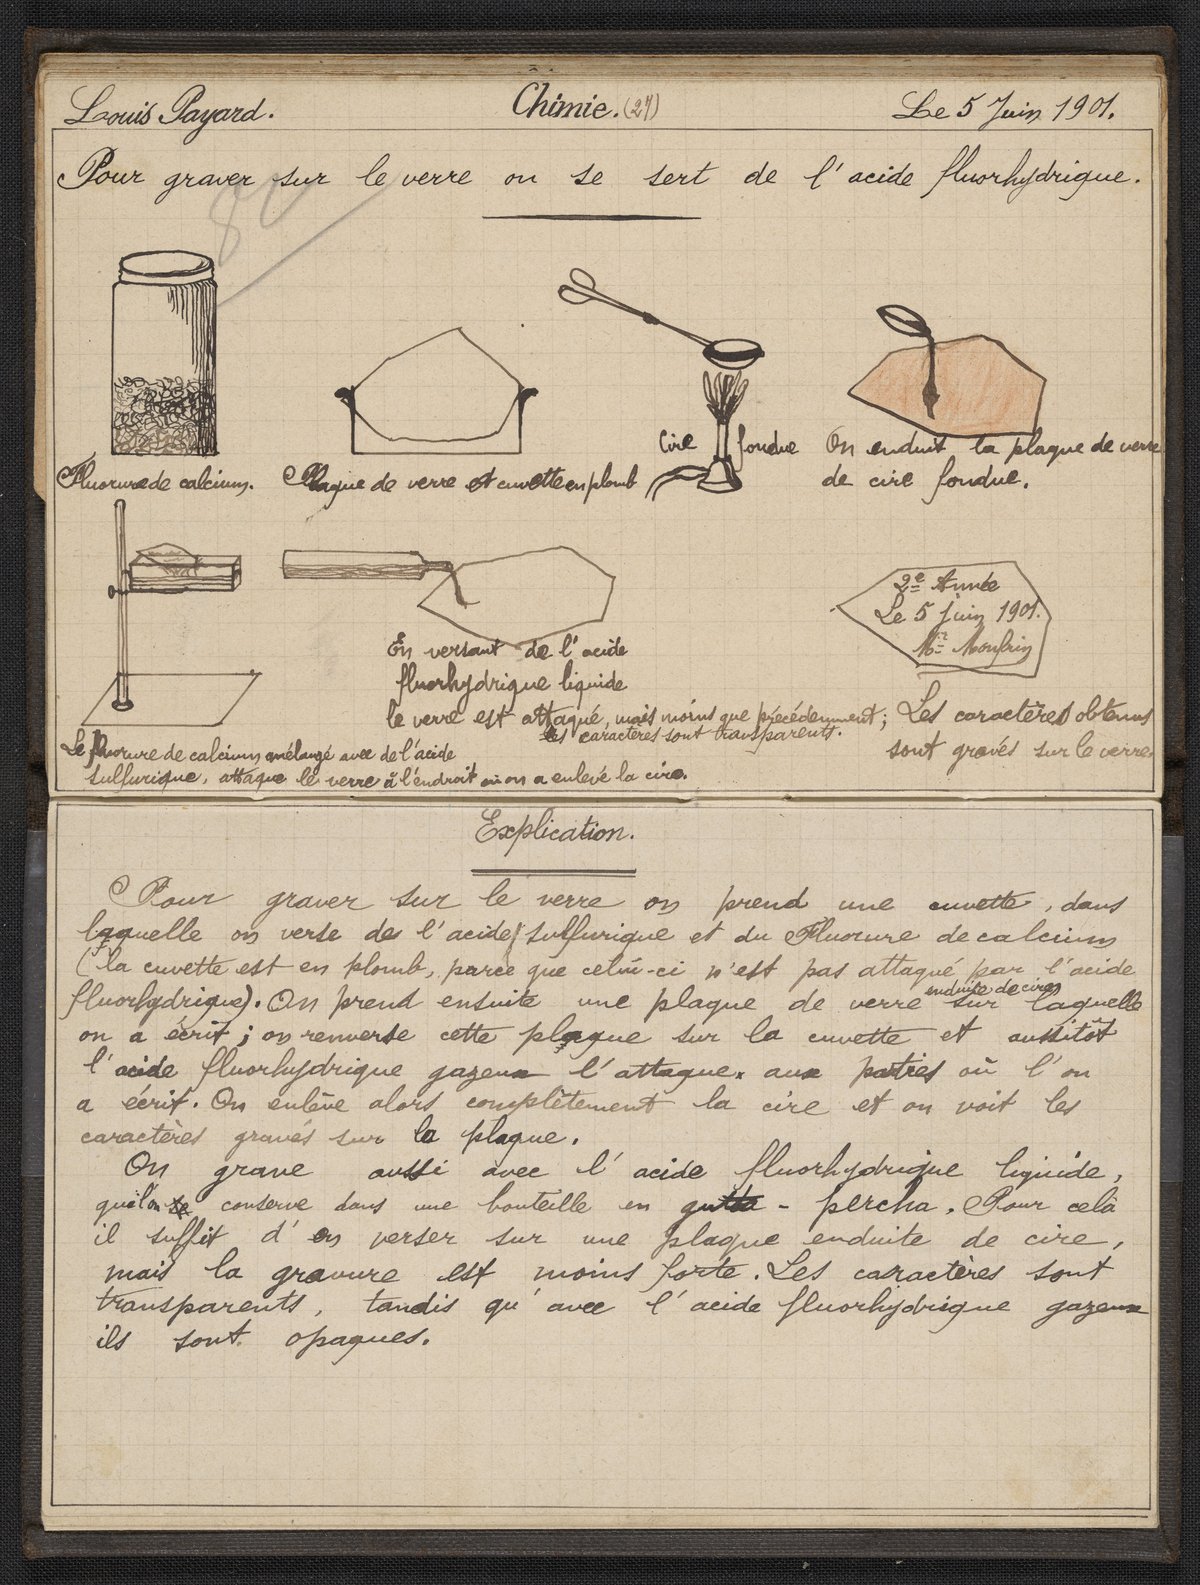 Louis Payard.
Chimie. (27)
Le 5 Juin 1901.
Pour graver sur le verre on se sert de l'acide fluorhydrique.
8
Fluorure de calcium.
Plaque de verre et cuvette en plomb
Cire fondue
On enduit la plaque de verre
de cire fondue.
Le fluorure de calcium mélangé avec de l'acide
sulfurique, attaque le verre à l'endroit où on a enlevé la cire.
En versant de l'acide
fluorhydrique liquide
le verre est attaqué, mais moins que précédemment;
les caractères sont transparents.
2e Année
Le 5 Juin 1901.
Mr
Les caractères obtenus
sont gravés sur le verre.
Explication.
Pour graver sur le verre on prend une cuvette, dans
laquelle on verse de l'acide sulfurique et du Fluorure de calcium
(la cuvette est en plomb, parce que celui-ci n'est pas attaqué par l'acide
fluorhydrique). On prend ensuite une plaque de verre enduite de cire sur laquelle
on a écrit; on renverse cette plaque sur la cuvette et aussitôt
l'acide fluorhydrique gazeux l'attaque aux parties où l'on
a écrit. On enlève alors complètement la cire et on voit les
caractères gravés sur la plaque.
On grave aussi avec l'acide fluorhydrique liquide,
qu'on conserve dans une bouteille en gutta-percha. Pour celà
il suffit d'en verser sur une plaque enduite de cire,
mais la gravure est moins forte. Les caractères sont
transparents, tandis qu'avec l'acide fluorhydrique gazeux
ils sont opaques.